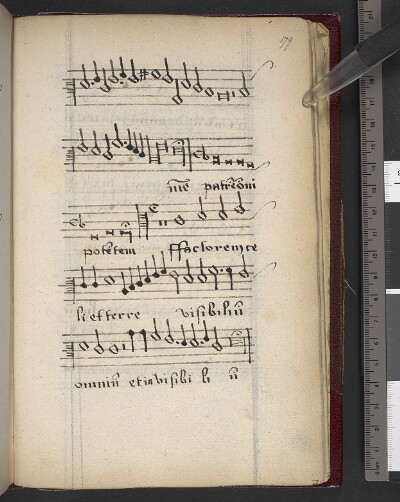 179
mē patrē oni
potētem ffactorem ce
li et terre visibiliū
omniū et in visibi li ū